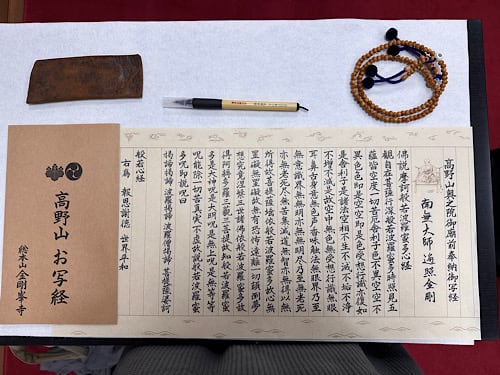 高野山奥之院御廟前奉納御写経
南無大師遍照金剛
佛説摩訶般若波羅蜜多心経
観自在菩薩行深般若波羅蜜多時照見五
蘊皆空度一切苦厄舎利子色不異空空不
異色色即是空空即是色受想行識亦復如
是舎利子是諸法空相不生不滅不垢不浄
不増不減是故空中無色無受想行識無眼
耳鼻舌身意無色声香味触法無眼界乃至
無意識界無無明亦無無明尽乃至無老死
亦無老死尽無苦集滅道無智亦無得以無
所得故菩提薩埵依般若波羅蜜多故心無
罣礙無罣礙故無有恐怖遠離一切顛倒夢
想究竟涅槃三世諸佛依般若波羅蜜多故
得阿耨多羅三藐三菩提故知般若波羅蜜
多是大神呪是大明呪是無上呪是無等等
呪能除一切苦真実不虚故説般若波羅蜜
多呪即説呪曰
羯諦羯諦 波羅羯諦 波羅僧羯諦 菩提薩婆訶
般若心経
右為 報恩謝徳 世界平和
高野山 お写経
総本山 金剛峯寺